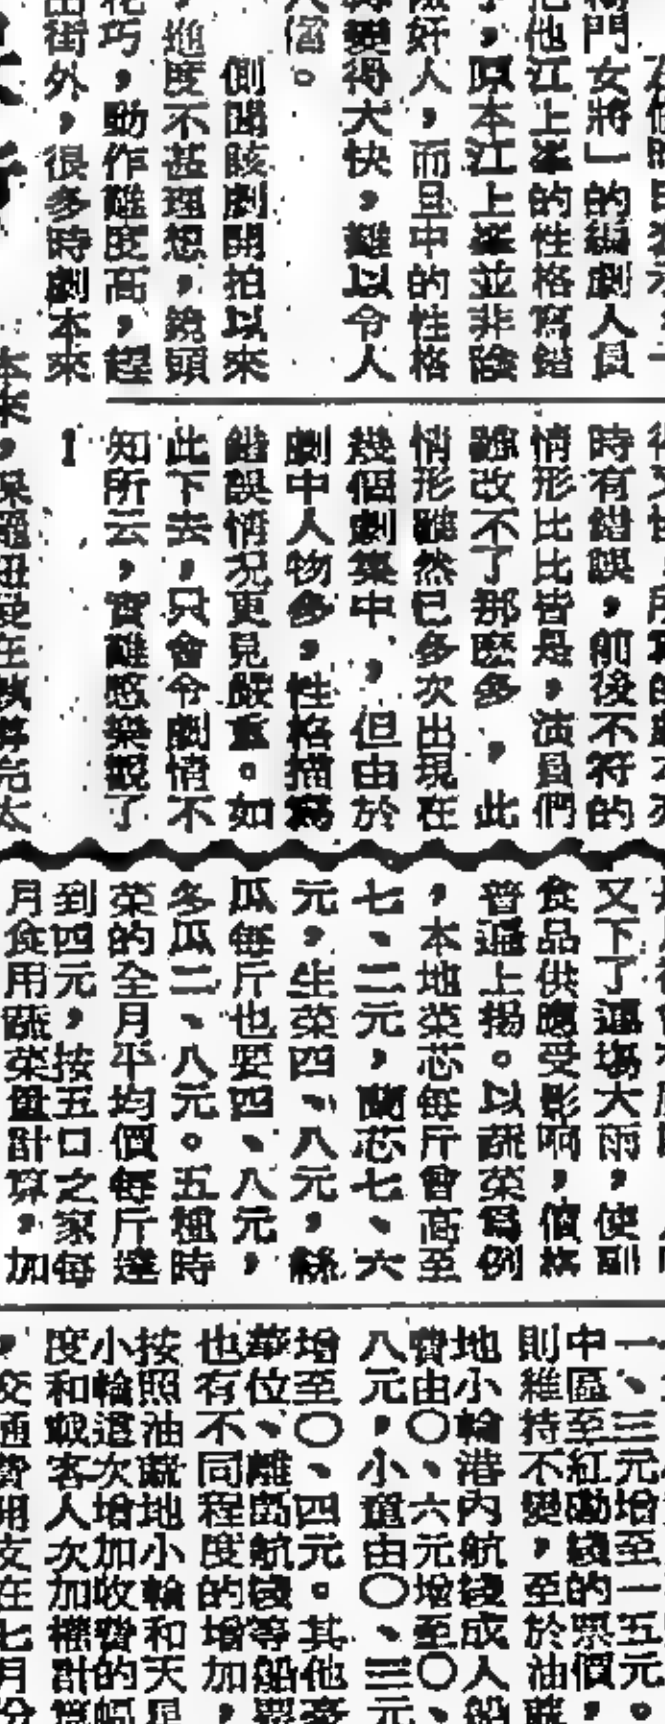 衙門女將」的編劇人員
他江上峯的性格寫錯
，原本江上峯並非陰
險奸人，而且中的性格
變得太快，難以令人
入信。
側聞該劇開拍以來
，進度不甚理想，鏡頭
花巧，動作難度高，
出街外，很多時劇本來
時有錯誤，前後不符的
情形比比皆是，演員們
改不了那麼多，此
情形雖然已多次出現在
幾個劇集中，但由於
劇中人物多，性格描寫
錯誤情況更見嚴重。如
此下去，只會令劇情不
知所云，實難感樂觀了
！
又下了這場大雨，使副
食品供應受影响，價格
普遍上揚。以蔬菜爲例
，本地菜芯每斤曾高至
七、二元，蘭芯七、六
元，生菜四、八元，絲
瓜每斤也要四、八元，
冬瓜二、八元。五種時
菜的全月平均價每斤達
到四元，按五口之家每
月食用蔬菜量計算，加
一、三元增至一五元。
中區至紅磡綫的票價，
則維持不變，至於油蔴
地小輪港內航綫成人船
費由〇、六元增至〇、
八元，小童由〇、三元
增至〇、四元。其他
單位、離島航綫等船票
也有不同程度的增加，
按照油蔴地小輪和天星
小輪這次增加收費的幅
度和載客人次加權計算
，交通費用支在七月份